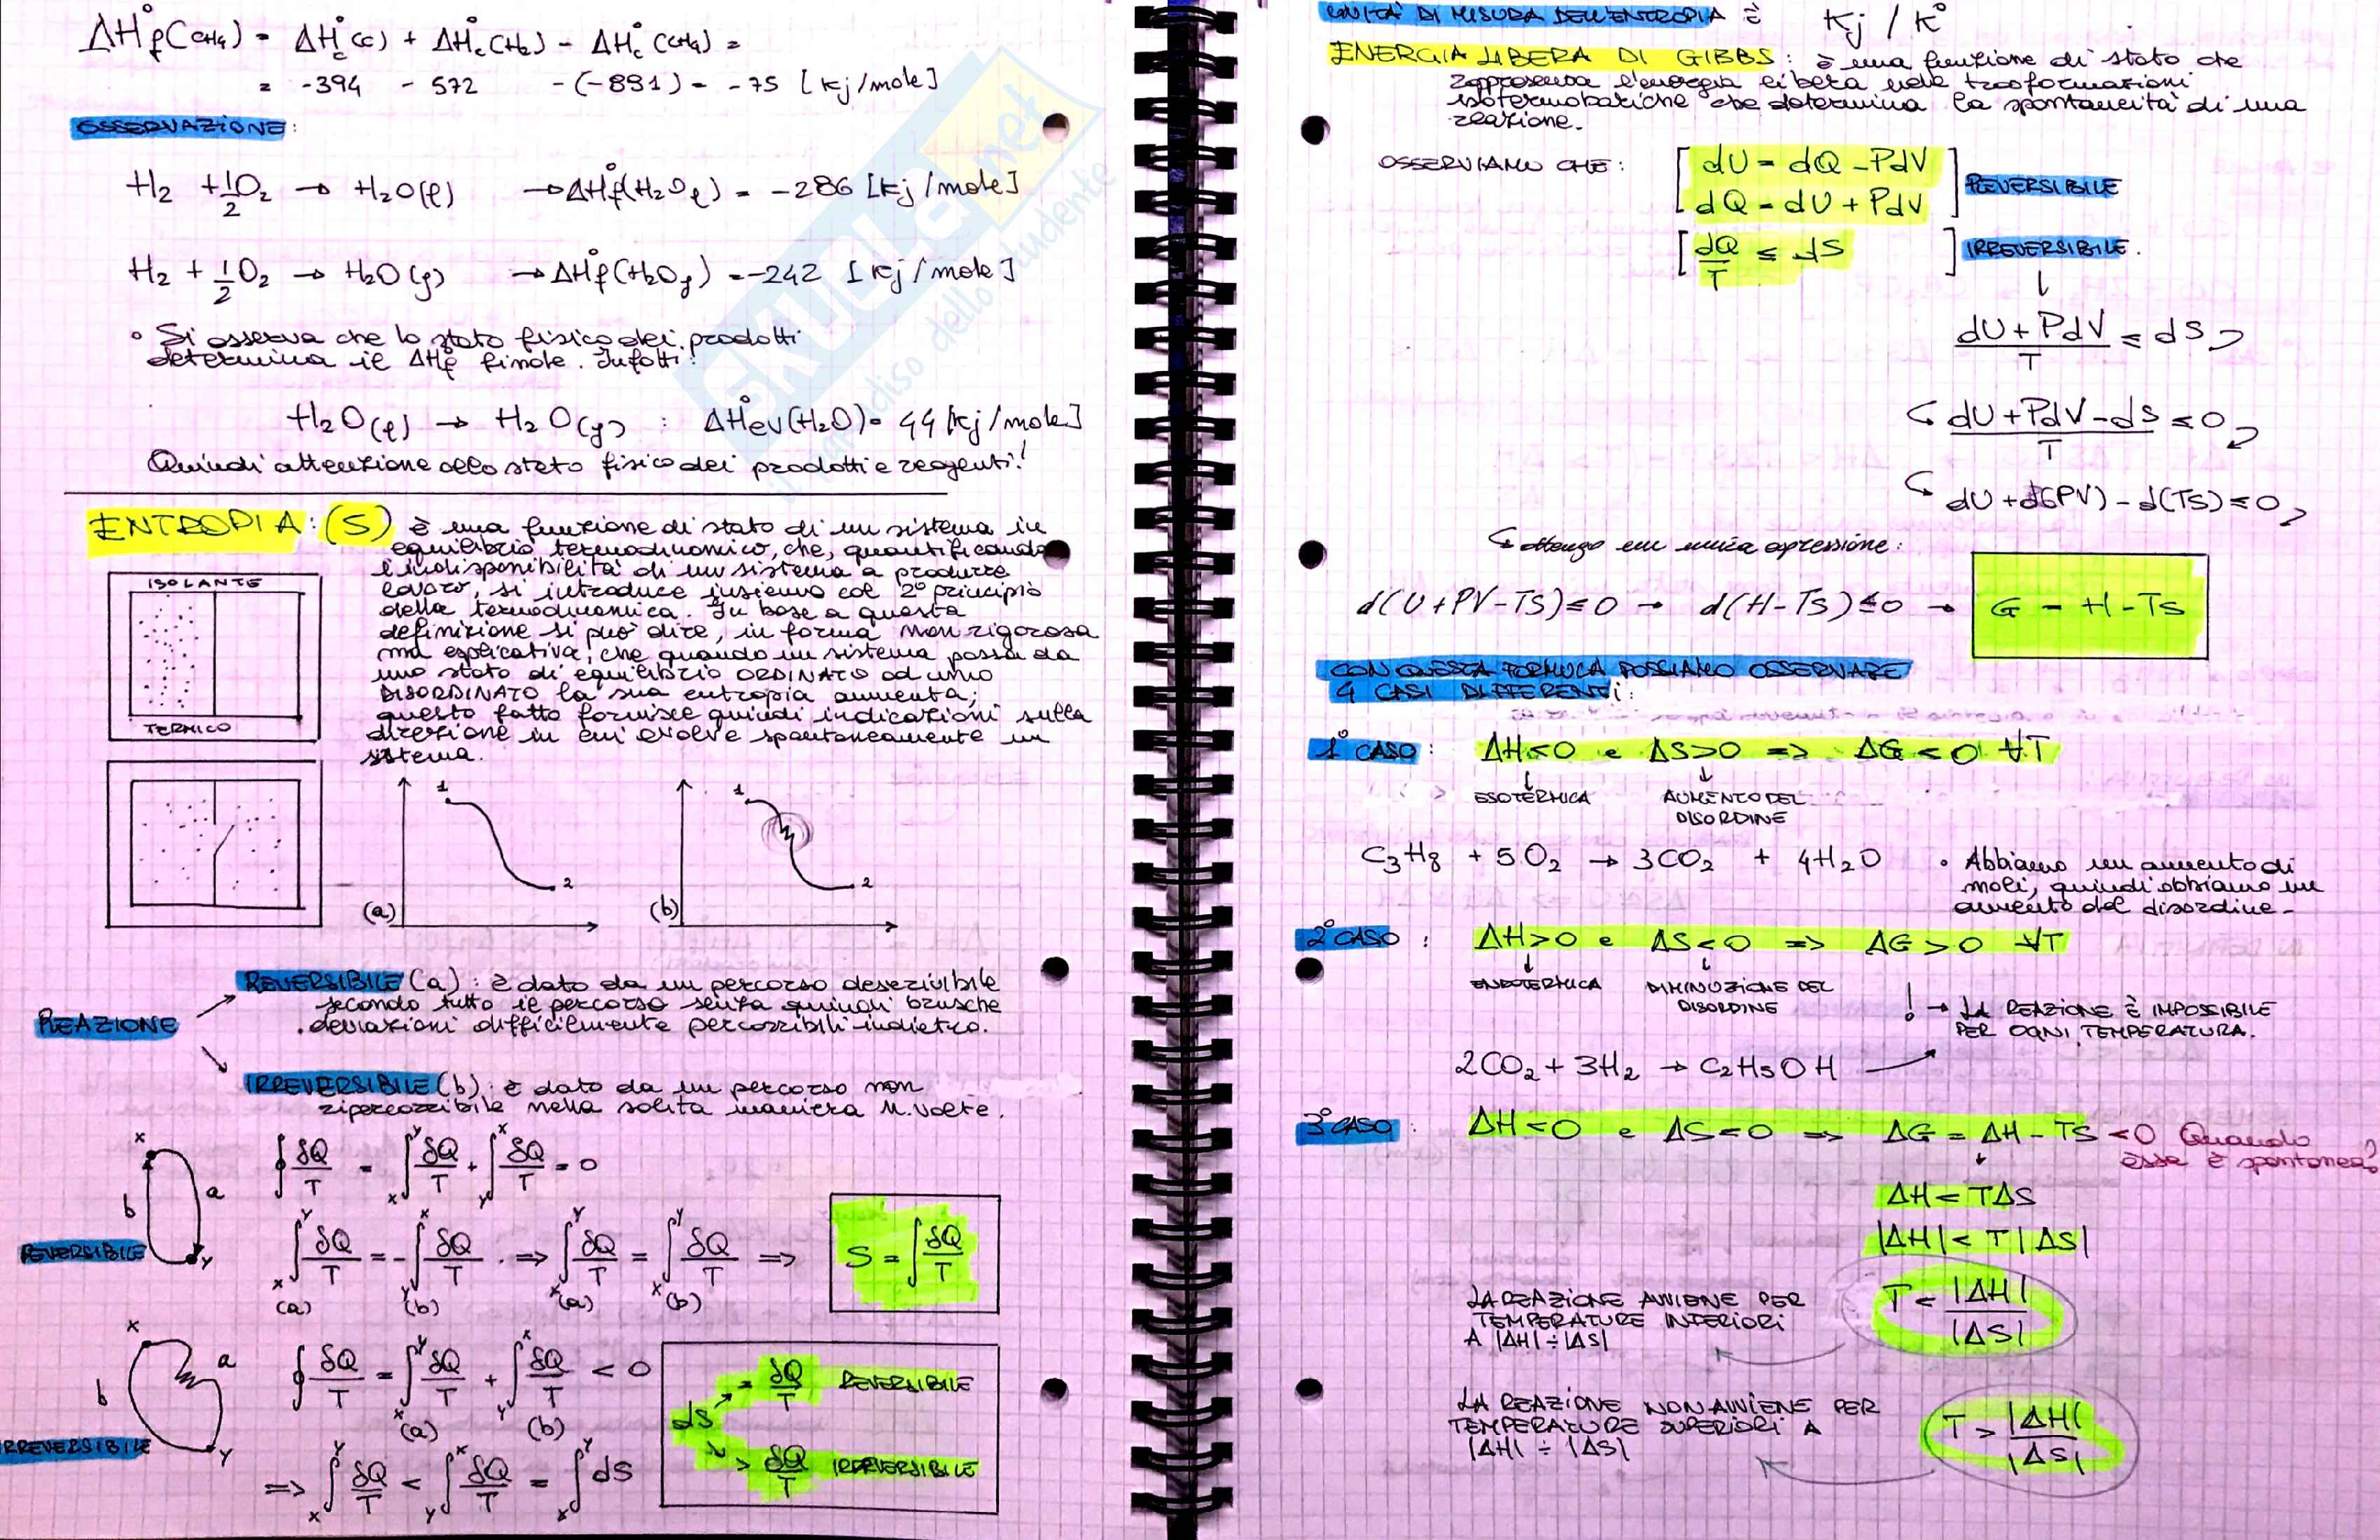 ΔH°f(CH4) = ΔH°c(C) + ΔH°c(H2) - ΔH°c(CH4) =
= -394 - 572 -(-891) = -75 [Kj/mole]
OSSERVAZIONE:
H2 + 1/2 O2 → H2O(l) → ΔH°f(H2O l) = -286 [Kj/mole]
H2 + 1/2 O2 → H2O(g) → ΔH°f(H2O g) = -242 [Kj/mole]
• Si osserva che lo stato fisico dei prodotti
determina il ΔH°f finale. Infatti:
H2O(l) → H2O(g) : ΔH°ev(H2O) = 44 [Kj/mole]
Quindi attenzione allo stato fisico dei prodotti e reagenti!
ENTROPIA: (S) è una funzione di stato di un sistema in
equilibrio termodinamico, che, quantificando
l'indisponibilità di un sistema a produrre
lavoro, si introduce insieme col 2° principio
della termodinamica. In base a questa
definizione si può dire, in forma non rigorosa
ma esplicativa, che quando un sistema passa da
uno stato di equilibrio ORDINATO ad uno
DISORDINATO la sua entropia aumenta;
questo fatto fornisce quindi indicazioni sulla
direzione in cui evolve spontaneamente un
sistema.
ISOLANTE
TERMICO
1
2
(a)
1
2
(b)
REAZIONE
REVERSIBILE (a): è dato da un percorso descrivibile
secondo tutto il percorso senza quindi brusche
deviazioni difficilmente percorribili indietro.
IRREVERSIBILE (b): è dato da un percorso non
ripercorribile nella solita maniera n. volte.
x
b
a
y
REVERSIBILE
∮ δQ/T = x∫y δQ/T + y∫x δQ/T = 0
x∫y δQ/T (a) = - y∫x δQ/T (b) . => x∫y δQ/T (a) = x∫y δQ/T (b) =>
S = ∫ δQ/T
x
b
a
y
IRREVERSIBILE
∮ δQ/T = x∫y δQ/T (a) + y∫x δQ/T (b) < 0
=> x∫y δQ/T < y∫x δQ/T = x∫y dS
dS
= δQ/T REVERSIBILE
> δQ/T IRREVERSIBILE
SKUOLA.net
il paradiso dello studente
UNITÀ DI MISURA DELL'ENTROPIA È Kj / K°
ENERGIA LIBERA DI GIBBS: è una funzione di stato che
rappresenta l'energia libera nelle trasformazioni
isotermobariche che determina la spontaneità di una
reazione.
OSSERVIAMO CHE: [ dU = dQ - PdV
dQ = dU + PdV ] REVERSIBILE
[ dQ/T ≤ dS ] IRREVERSIBILE.
↓
(dU + PdV)/T ≤ dS
(dU + PdV - dS)/T ≤ 0
dU + d(PV) - d(TS) ≤ 0
↪ ottengo un'unica espressione:
d(U+PV-TS) ≤ 0 → d(H-TS) ≤ 0 → G = H-TS
CON QUESTA FORMULA POSSIAMO OSSERVARE
4 CASI DIFFERENTI:
1° CASO: ΔH<0 e ΔS>0 => ΔG<0 ∀T
ESOTERMICA AUMENTO DEL
DISORDINE
C3H8 + 5O2 → 3CO2 + 4H2O
• Abbiamo un aumento di
moli, quindi abbiamo un
aumento del disordine.
2° CASO: ΔH>0 e ΔS<0 => ΔG>0 ∀T
ENDOTERMICA DIMINUZIONE DEL
DISORDINE
! → LA REAZIONE È IMPOSSIBILE
PER OGNI TEMPERATURA.
2CO2 + 3H2 → C2H5OH
3° CASO: ΔH<0 e ΔS<0 => ΔG = ΔH - TS <0 Quando
esse è spontanea?
ΔH < TΔS
|ΔH| < T|ΔS|
LA REAZIONE AVVIENE PER
TEMPERATURE INFERIORI
A |ΔH| ÷ |ΔS|
T < |ΔH|/|ΔS|
LA REAZIONE NON AVVIENE PER
TEMPERATURE SUPERIORI A
|ΔH| ÷ |ΔS|
T > |ΔH|/|ΔS|